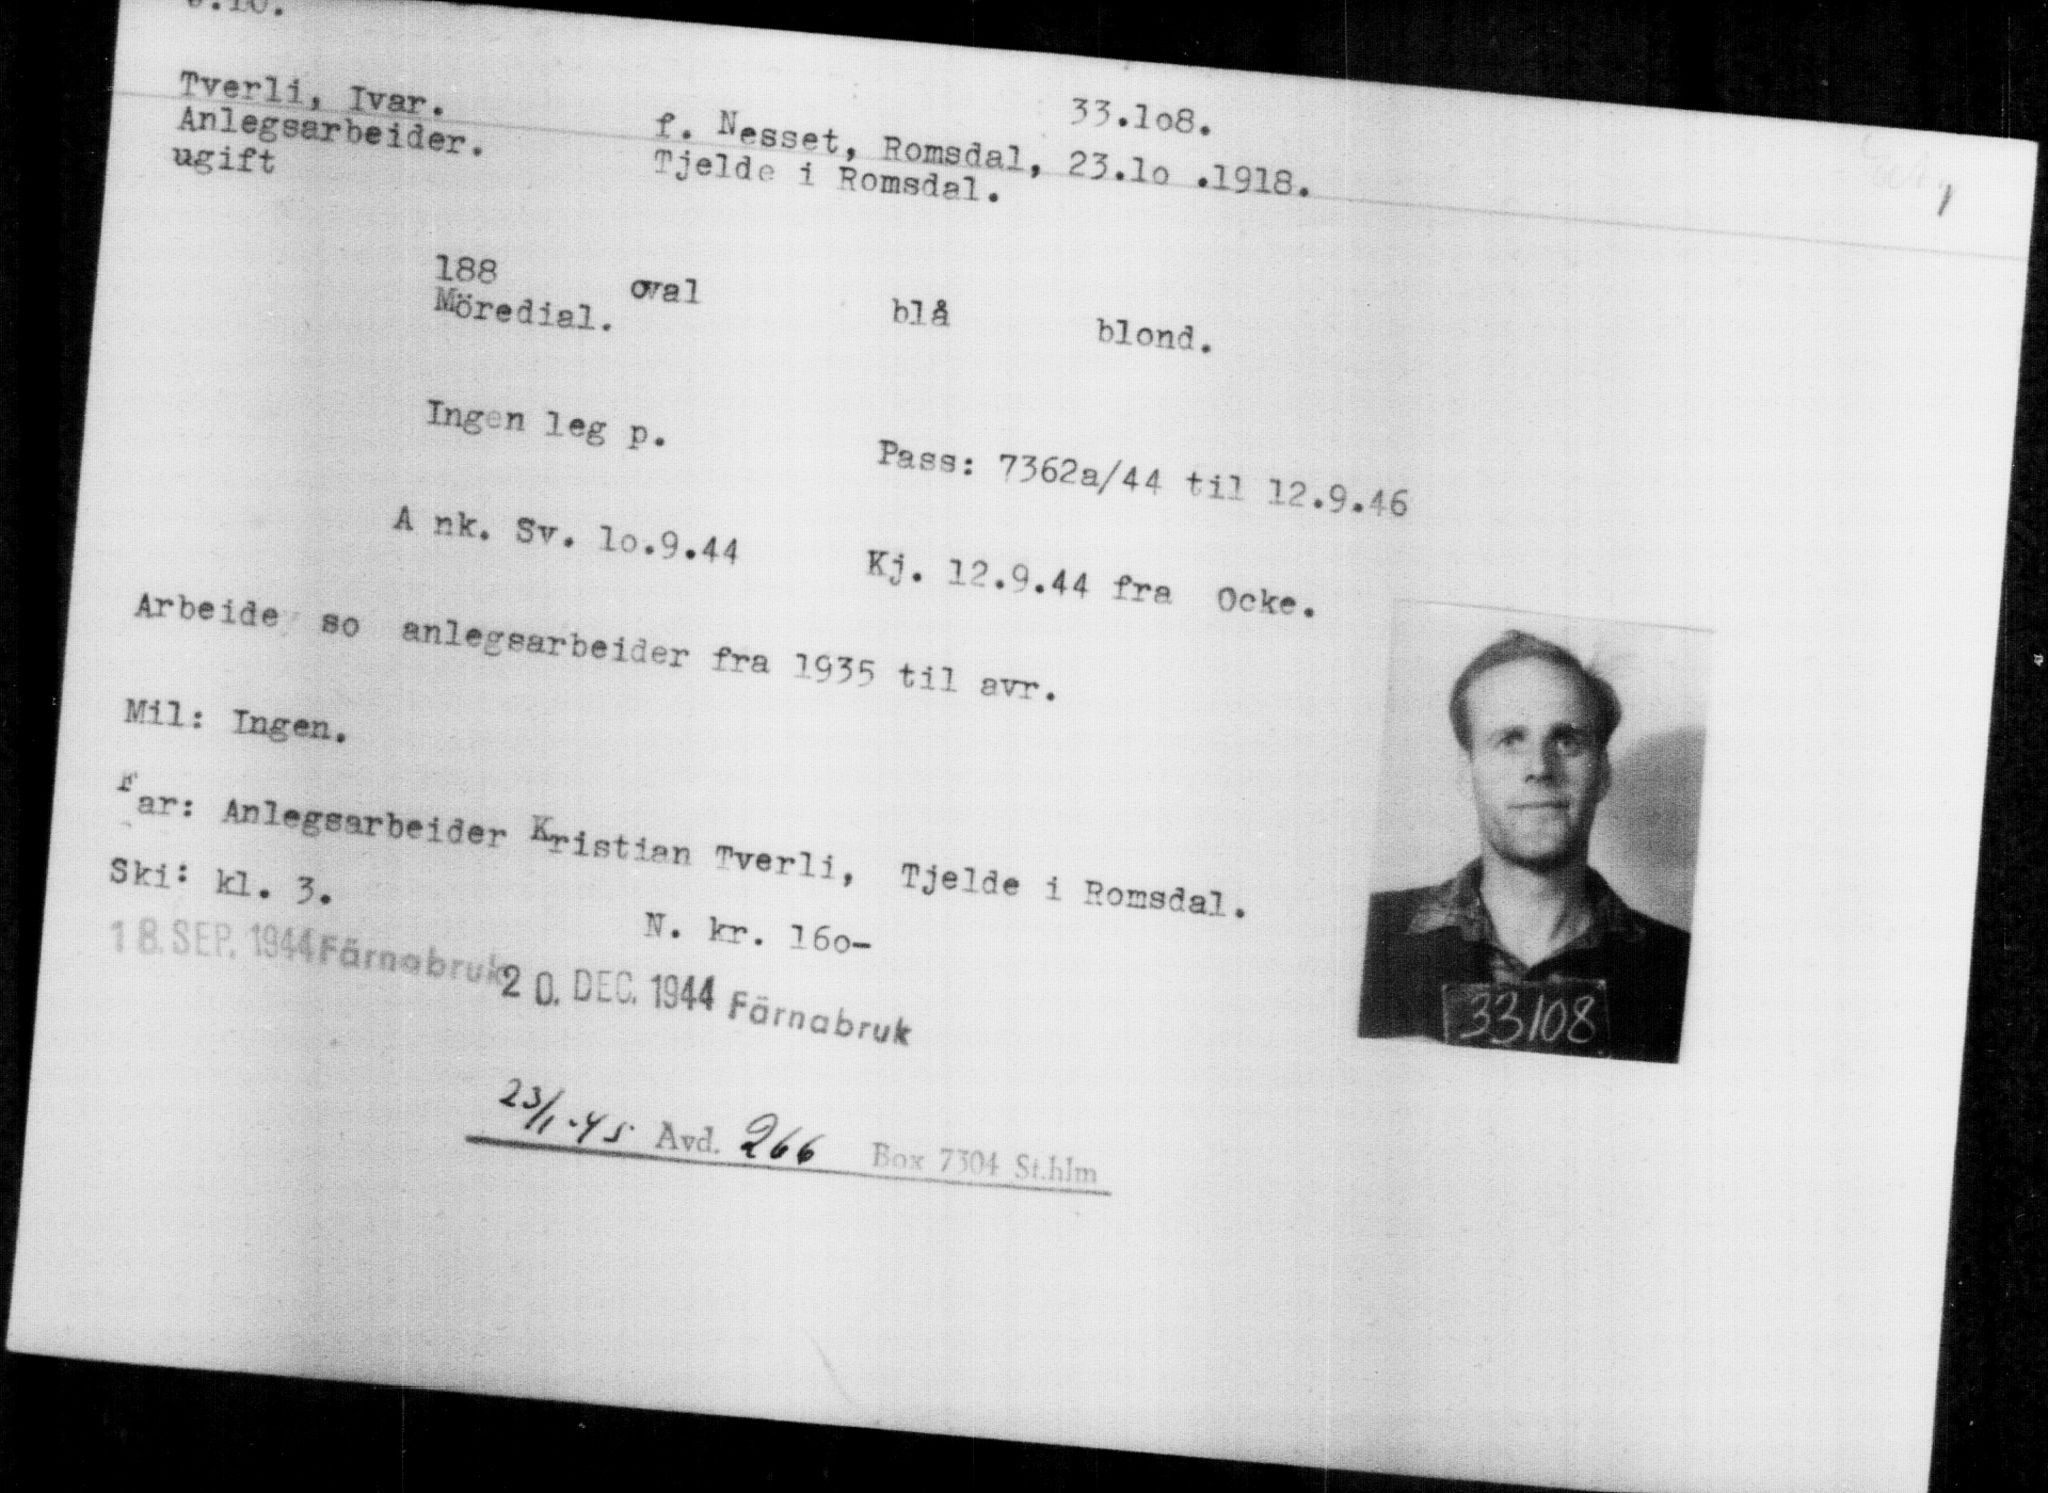 Tverli, Ivar. 33.lo8.
Anlegsarbeider. f. Nesset, Romsdal, 23.lo .1918.
ugift Tjelde i Romsdal.
188 oval blå blond.
Möredial.
Ingen leg p. Pass: 7362a/44 til 12.9.46
A nk. Sv. lo.9.44 Kj. 12.9.44 fra Ocke.
Arbeide so anlegsarbeider fra 1935 til avr.
Mil: Ingen.
Far: Anlegsarbeider Kristian Tverli, Tjelde i Romsdal.
Ski: kl. 3. N. kr. 16o-
18. SEP. 1944 Färnabruk 20. DEC. 1944 Färnabruk
23/1-45 Avd. 266 Box 7304 St.hlm
33108